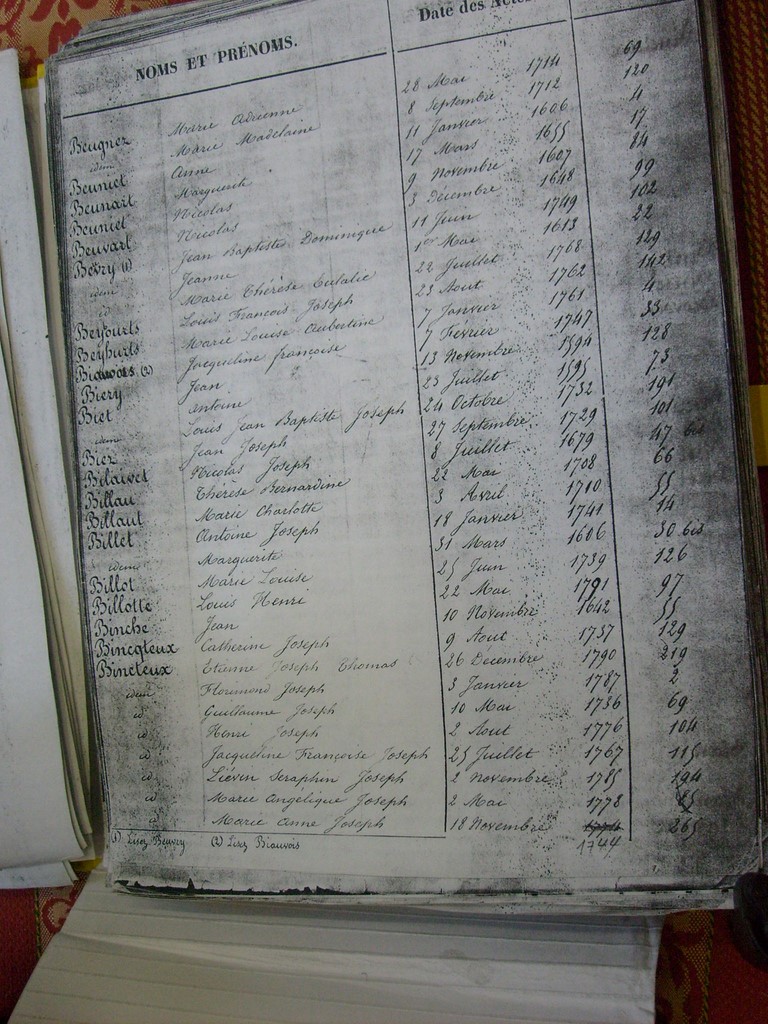 NOMS ET PRÉNOMS. Date des Actes.
Beugnez Marie Adrienne 28 Mai 1714 69
idem Marie Madelaine 8 Septembre 1712 120
Beuniet Anne 11 Janvier 1606 4
Beunart Marguerite 17 Mars 1655 17
Beuniet Nicolas 9 Novembre 1607 84
Beuvart Nicolas 3 Décembre 1648 99
Bevry (1) Jean Baptiste Dominique 11 Juin 1749 102
idem Jeanne 1er Mai 1613 22
id Marie Thérèse Eulalie 22 Juillet 1768 129
Beyfourts Louis François Joseph 23 Aout 1762 142
Beyburts Marie Louise Aubertine 7 Janvier 1761 4
Biauvois (2) Jacqueline françoise 7 Fevrier 1747 33
Biery Jean 13 Novembre 1594 128
Biet Antoine 23 Juillet 1595 73
idem Louis Jean Baptiste Joseph 24 Octobre 1732 191
Biez Jean Joseph 27 Septembre 1729 101
Bilaivet Nicolas Joseph 8 Juillet 1679 47 bis
Billau Thérèse Bernardine 22 Mai 1708 66
Billaut Marie Charlotte 3 Avril 1710 55
Billet Antoine Joseph 18 Janvier 1741 14
idem Marguerite 31 Mars 1606 30 bis
Billot Marie Louise 25 Juin 1739 126
Billotte Louis Henri 22 Mai 1791 97
Binche Jean 10 Novembre 1642 55
Bincqteux Catherine Joseph 9 Aout 1737 129
Bincteux Etienne Joseph Thomas 26 Decembre 1790 219
idem Florimond Joseph 3 Janvier 1787 2
id Guillaume Joseph 10 Mai 1736 69
id Henri Joseph 2 Aout 1776 104
id Jacqueline Françoise Joseph 25 Juillet 1767 115
id Liévin Seraphin Joseph 2 Novembre 1785 194
id Marie Angélique Joseph 2 Mai 1778 85
id Marie Anne Joseph 18 Novembre 1774 265
1744
(1) Lisez Beuvry (2) Lisez Biauvois